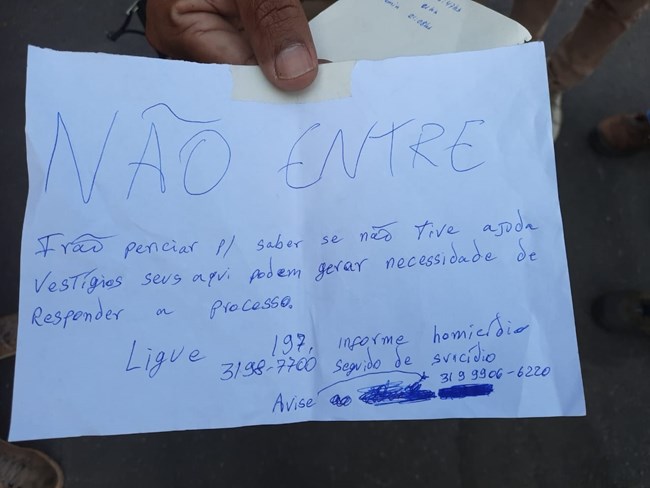 NÃO ENTRE
Irão periciar p/ saber se não tive ajuda
Vestígios seus aqui podem gerar necessidade de
Responder a processo.
Ligue 197, informe homicídio
3198-7700 seguido de suicídio
Avise 319 9906-6220